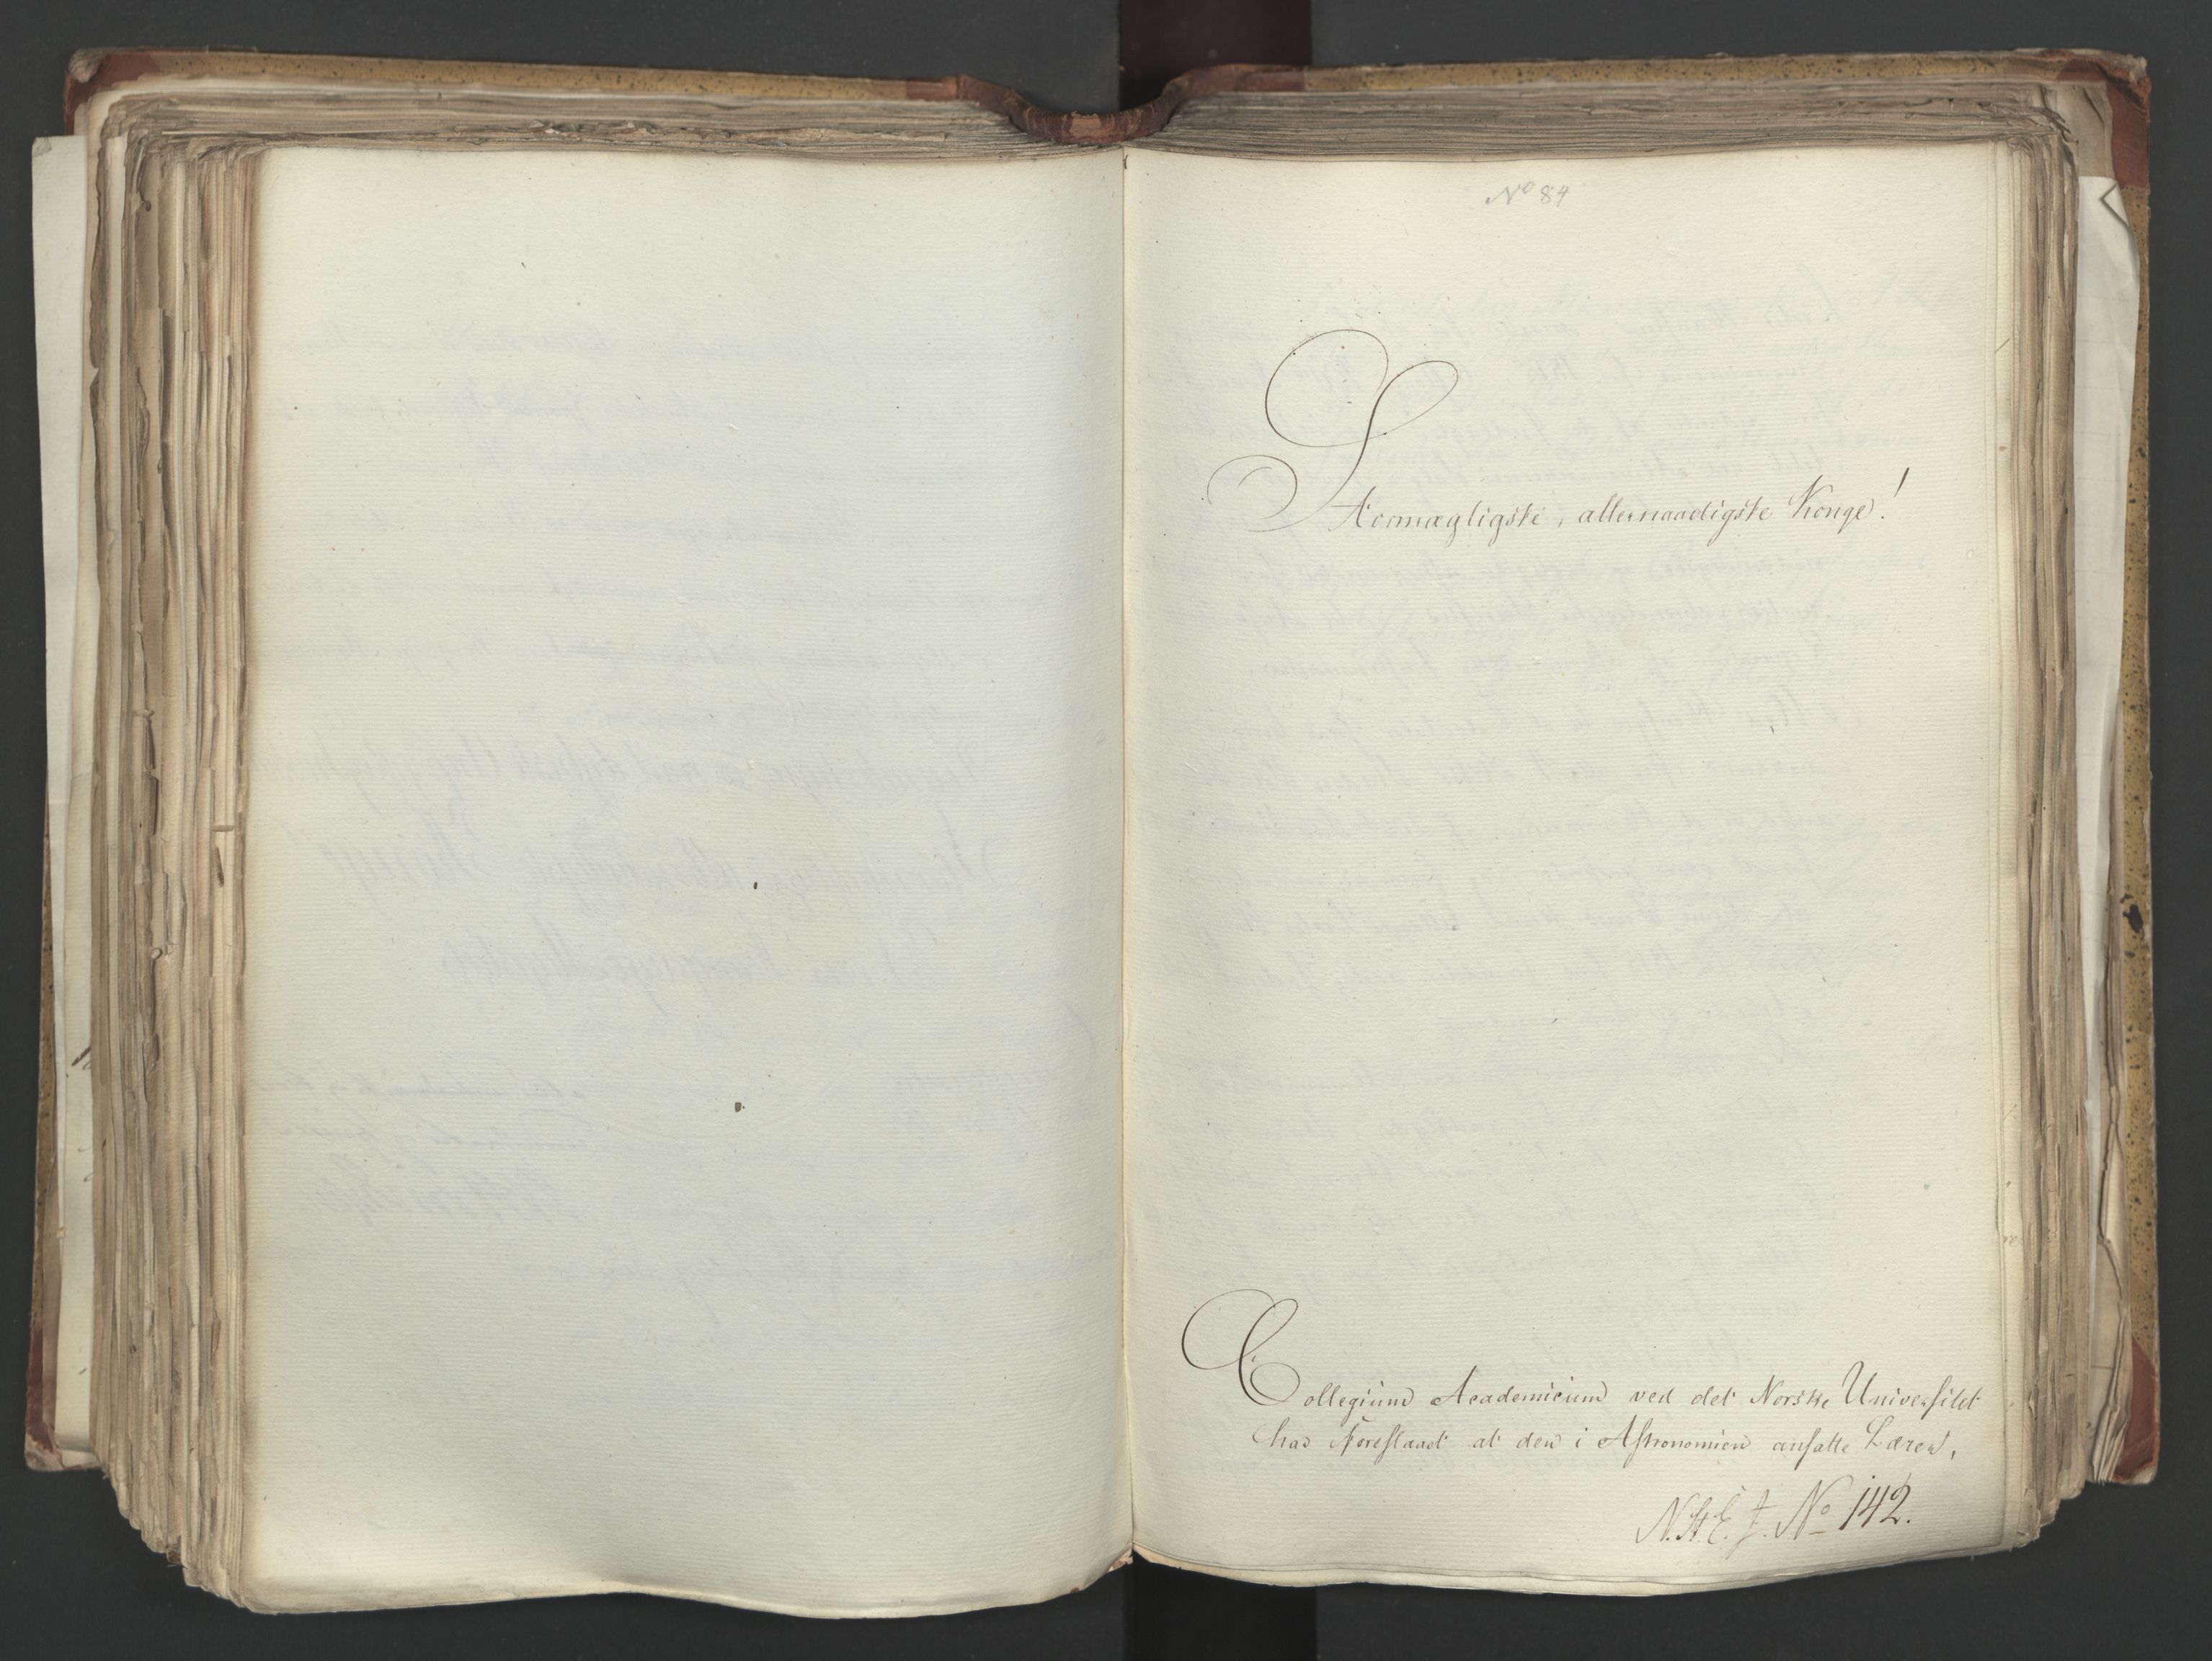 No 84
Stormægtigste, allernaadigste Konge!
Collegium Academicum ved det Norske Universitet
har foreslaaet at den i Astronomien ansatte Lærer,
N. St. E. J. No 142.